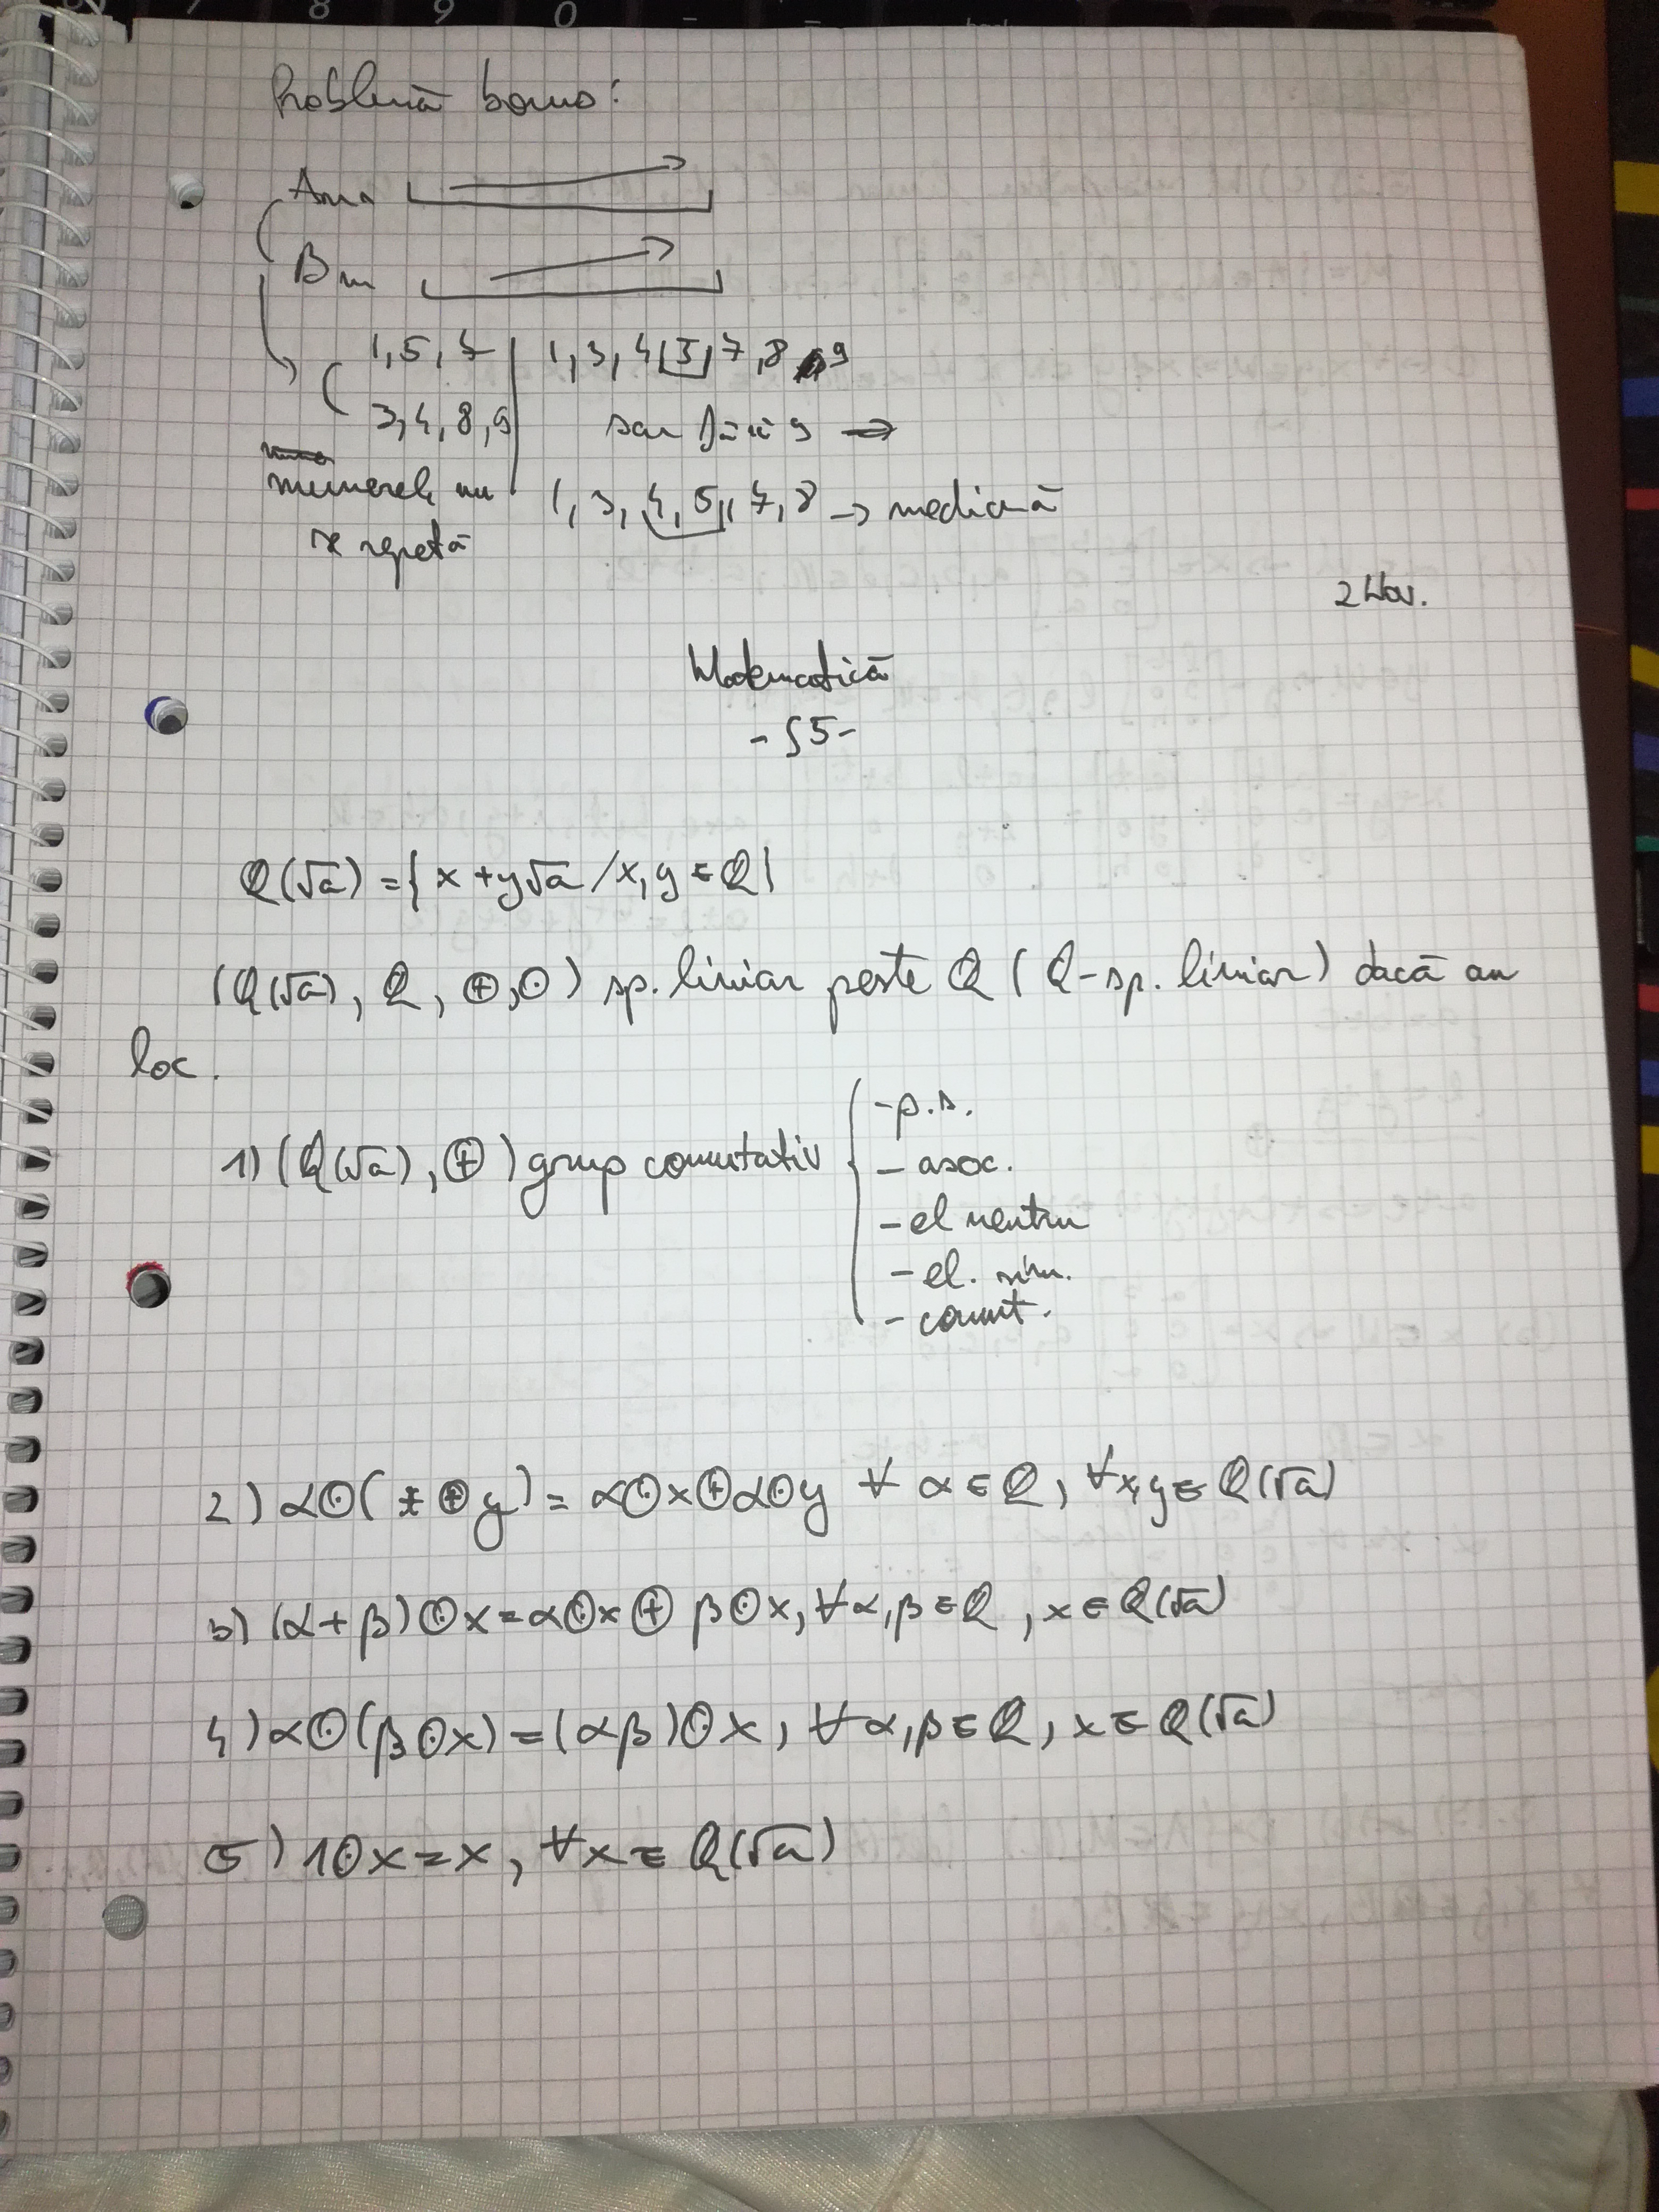 Problemă bonus:
Ana
Bm
1, 5, 7 | 1, 3, 4, 5, 7, 8, 9
3, 4, 8, 9 sau fără 9 ⇒
numerele nu 1, 3, 4, 5, 7, 8 → mediană
se repetă
2 Nov.
Matematică
- S5 -
Q(√a) = { x + y√a / x, y ∈ Q }
(Q(√a), Q, ⊕, ⊙) sp. liniar peste Q (Q-sp. liniar) dacă au
loc.
1) (Q(√a), ⊕) grup comutativ
- p.s.
- asoc.
- el neutru
- el. sim.
- comut.
2) α⊙(x ⊕ y) = α⊙x ⊕ α⊙y ∀ α ∈ Q, ∀x,y ∈ Q(√a)
3) (α+β)⊙x = α⊙x ⊕ β⊙x, ∀α,β ∈ Q, x ∈ Q(√a)
4) α⊙(β⊙x) = (αβ)⊙x, ∀α,β ∈ Q, x ∈ Q(√a)
5) 1⊙x = x, ∀x ∈ Q(√a)